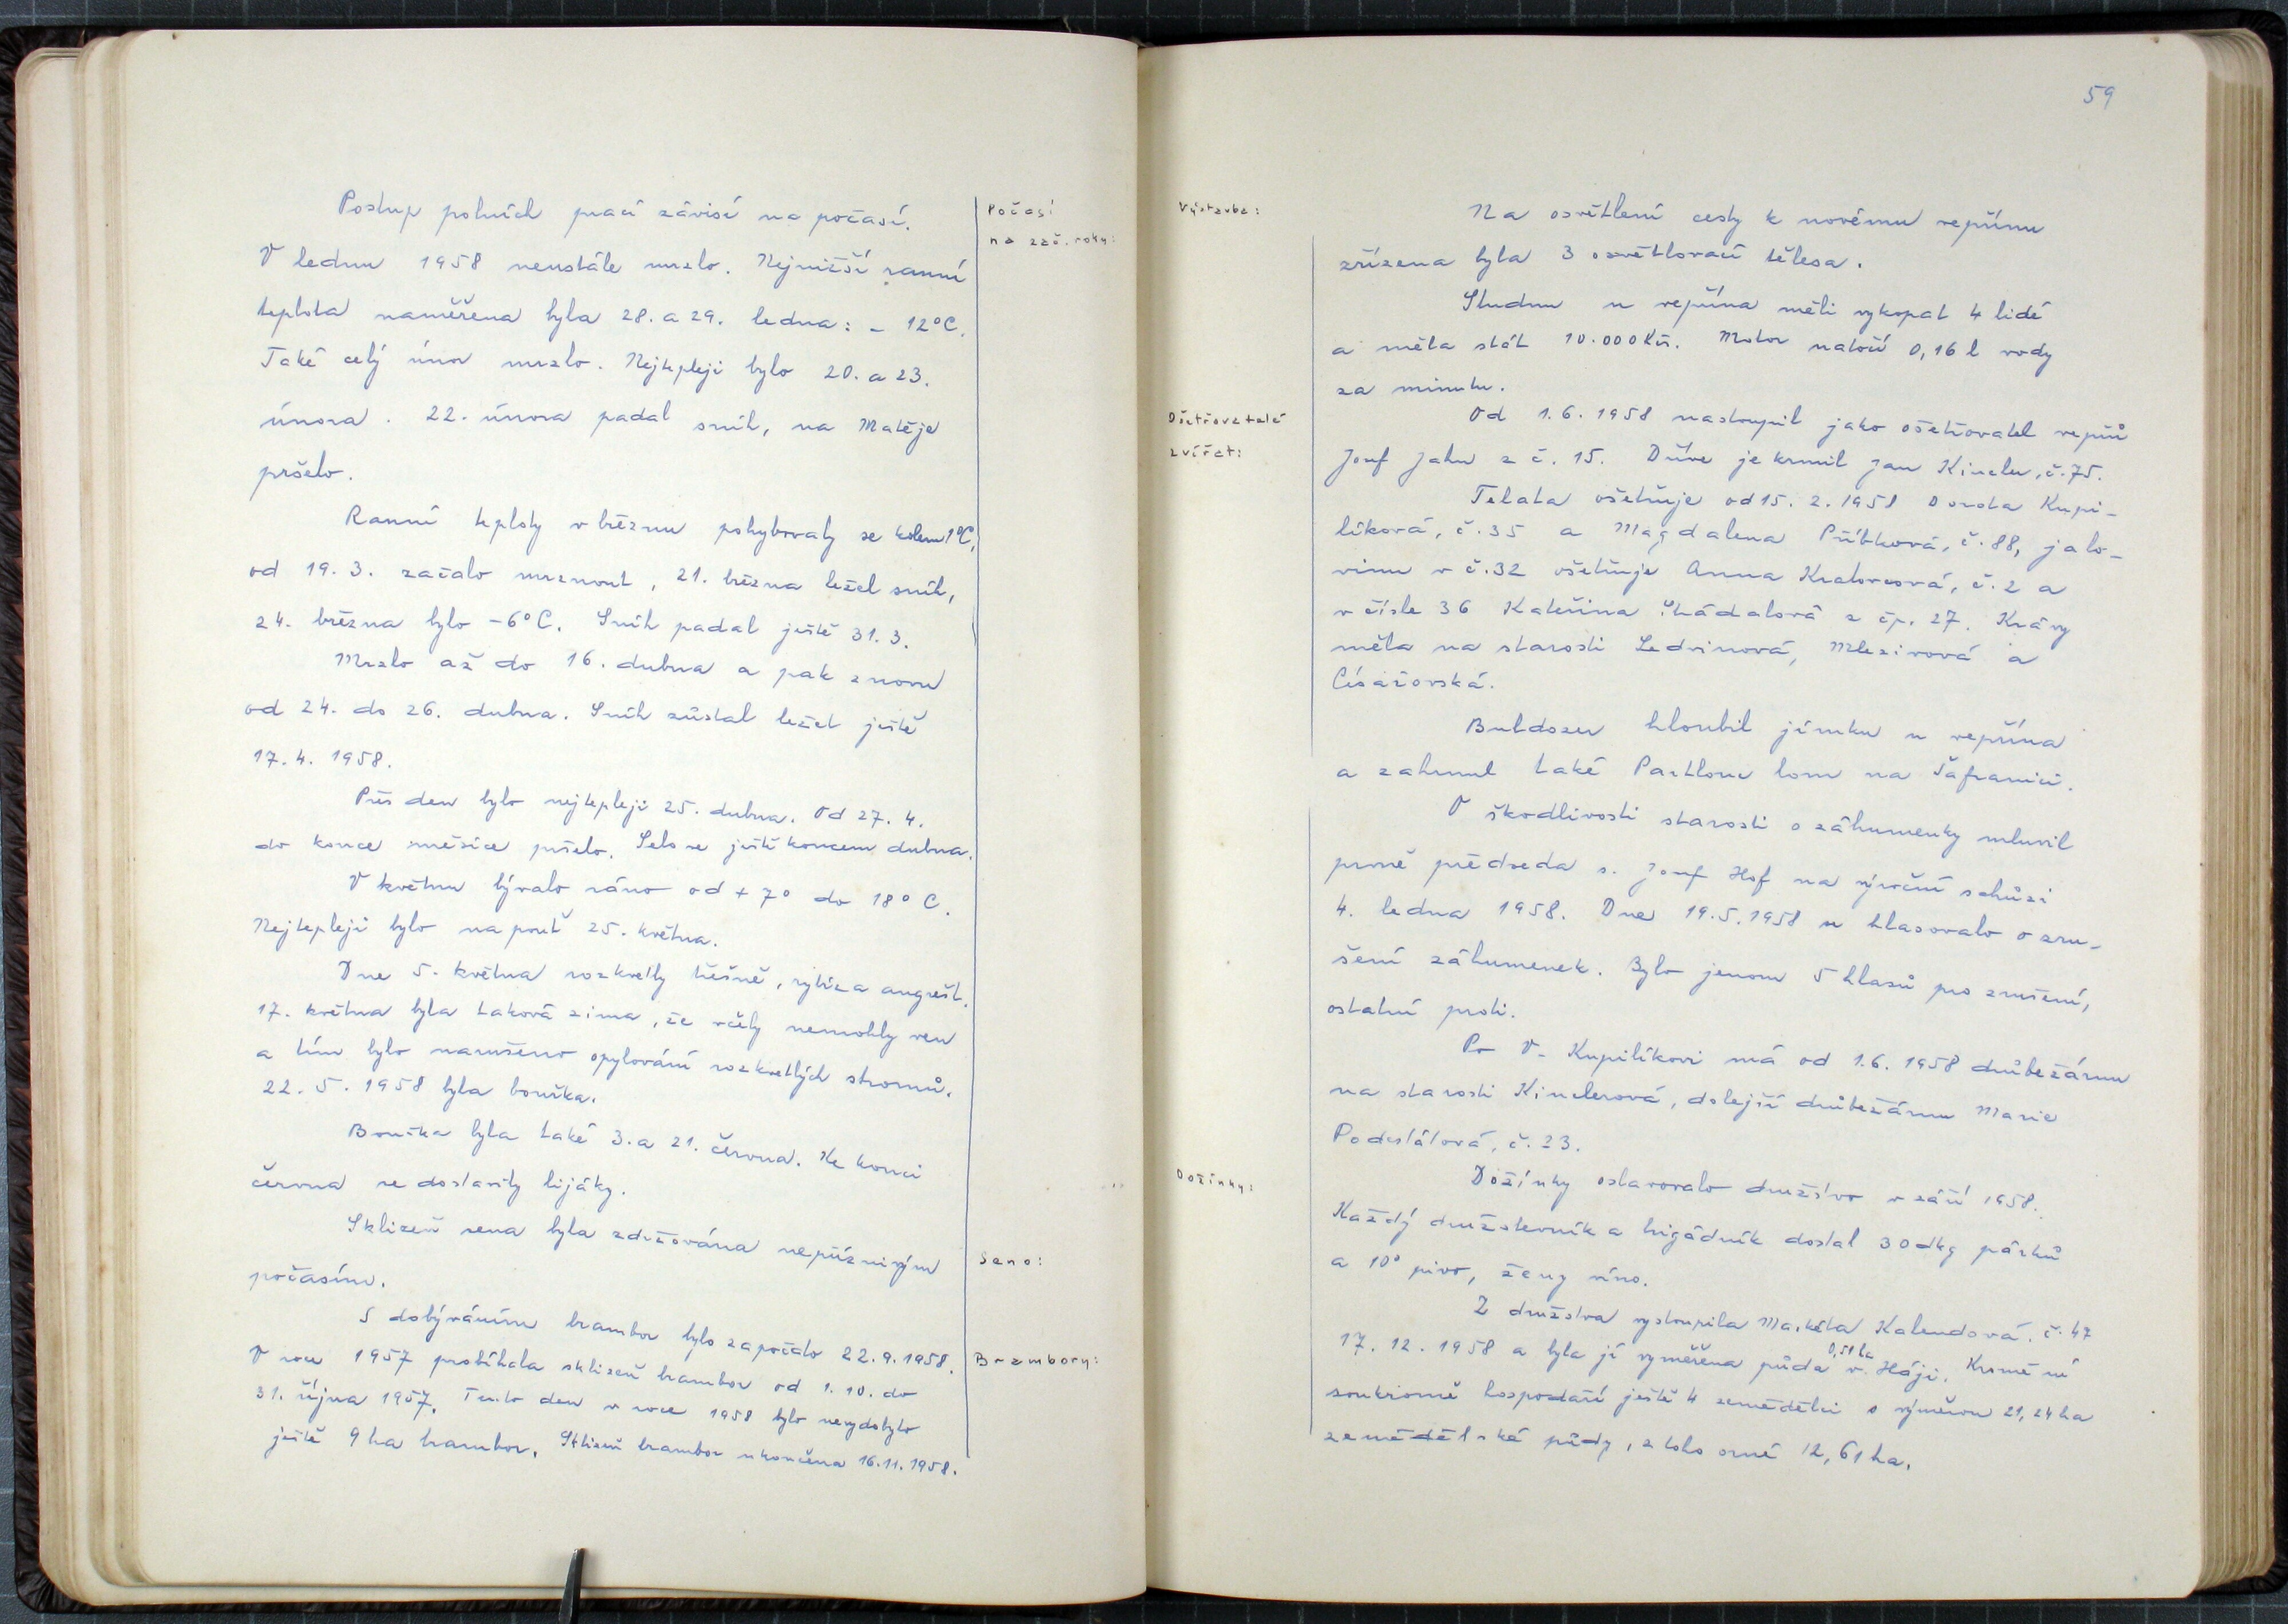 Postup polních prací závisí na počasí.
Počasí
na zač. roku:
V lednu 1958 neustále mrzlo. Nejnižší ranní
teplota naměřena byla 28. a 29. ledna: - 12°C.
Také celý únor mrzlo. Nejtepleji bylo 20. a 23.
února. 22. února padal sníh, na Matěje
pršelo.
Ranní teploty v březnu pohybovaly se kolem 1°C,
od 19. 3. začalo mrznout, 21. března ležel sníh,
24. března bylo -6°C. Sníh padal ještě 31. 3.
Mrzlo až do 16. dubna a pak znovu
od 24. do 26. dubna. Sníh zůstal ležet ještě
17. 4. 1958.
Přes den bylo nejtepleji 25. dubna. Od 27. 4.
do konce měsíce pršelo. Selo se ještě koncem dubna.
V květnu bývalo ráno od + 7° do 18° C.
Nejtepleji bylo na pouť 25. května.
Dne 5. května rozkvetly třešně, rybíz a angrešt.
17. května byla taková zima, že včely nemohly ven
a tím bylo narušeno opylování rozkvetlých stromů.
22. 5. 1958 byla bouřka.
Bouřka byla také 3. a 21. června. Ke konci
června se dostavily lijáky.
Sklizeň sena byla zdržována nepříznivým
Seno:
počasím.
S dobýváním brambor bylo započato 22. 9. 1958.
Brambory:
V roce 1957 probíhala sklizeň brambor od 1. 10. do
31. října 1957. Tento den v roce 1958 bylo nevydobyto
ještě 9 ha brambor. Sklizeň brambor ukončena 16. 11. 1958.
59
Výstavba:
Na osvětlení cesty k novému vepřínu
zřízena byla 3 osvětlovací tělesa.
Studnu u vepřína měli vykopat 4 lidé
a měla stát 10.000 Kčs. Motor natočí 0,16 l vody
za minutu.
Ošetřovatelé
zvířat:
Od 1. 6. 1958 nastoupil jako ošetřovatel vepřů
Josef Jahn z č. 15. Dříve je krmil Jan Kincler, č. 75.
Telata ošetřuje od 15. 2. 1958 Dorota Kupi-
líková, č. 35 a Magdalena Přibková, č. 88, jalo-
vinu v č. 32 ošetřuje Anna Kratovcová, č. 2 a
v čísle 36 Kateřina Shádalová z čp. 27. Krávy
měla na starosti Ledvinová, Mlezivová a
Císařovská.
Buldozer hloubil jímku u vepřína
a zahrnul také Partlouv lom na Šafranici.
O škodlivosti starosti o záhumenky mluvil
prvně předseda s. Josef Hof na výroční schůzi
4. ledna 1958. Dne 19. 5. 1958 se hlasovalo o zru-
šení záhumenek. Bylo jenom 5 hlasů pro zrušení,
ostatní proti.
Po V. Kupilíkovi má od 1. 6. 1958 drůbežárnu
na starosti Kinclerová, dolejší drůbežárnu Marie
Podestátová, č. 23.
Dožínky:
Dožínky oslavovalo družstvo v září 1958.
Každý družstevník a brigádník dostal 30 dkg párků
a 10° pivo, ženy víno.
Z družstva vystoupila Markéta Kalendová, č. 47
17. 12. 1958 a byla jí vyměřena půda 0,51 ha v Háji. Kromě ní
soukromě hospodaří ještě 4 zemědělci s výměrou 21,24 ha
zemědělské půdy, z toho orné 12,61 ha.